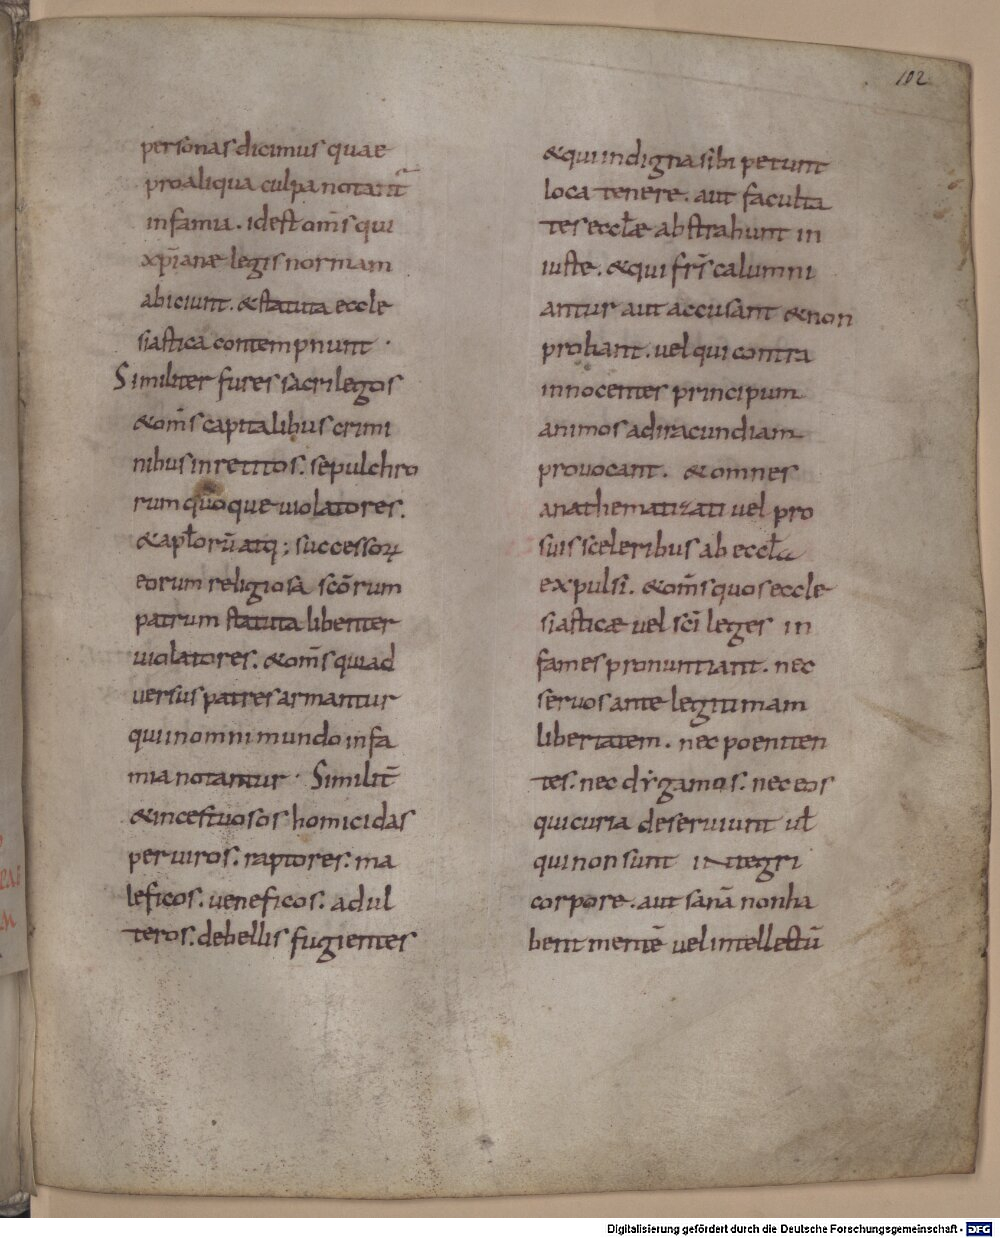 102
personas dicimus quae
pro aliqua culpa notant̄
infamia. id est om̄s qui
xp̄ianae legis normam
abiciunt. & statuta eccle
siastica contempnunt ·
Similiter fures sacrilegos
& om̄s capitalibus crimi
nibus inretitos. sepulchro
rum quoque violatores.
& apl̄orū atq; successoꝝ
eorum religiosa sc̄orum
patrum statuta libenter
violatores. & om̄s qui ad
versus patres armantur
qui in omni mundo infa
mia notantur · Similit̄
& incestuosos homicidas
periuros. raptores. ma
leficos. veneficos. adul
teros. de bellis fugientes
& qui indigna sibi petunt
loca tenere. aut faculta
tes eccl̄ae abstrahunt in
iuste. & qui fr̄s calumni
antur aut accusant & non
probant. vel qui contra
innocentes principum
animos ad iracundiam
provocant. & omnes
anathematizati vel pro
suis sceleribus ab eccl̄a
expulsi. & om̄s quos eccle
siasticae vel sc̄i leges in
fames pronuntiant. nec
servos ante legitimam
libertatem. nec poeniten
tes. nec dẏgamos. nec eos
qui curia deserviunt ul̄
qui non sunt integri
corpore. aut sanā non ha
bent mentē vel intellectū
Digitalisierung gefördert durch die Deutsche Forschungsgemeinschaft - DFG